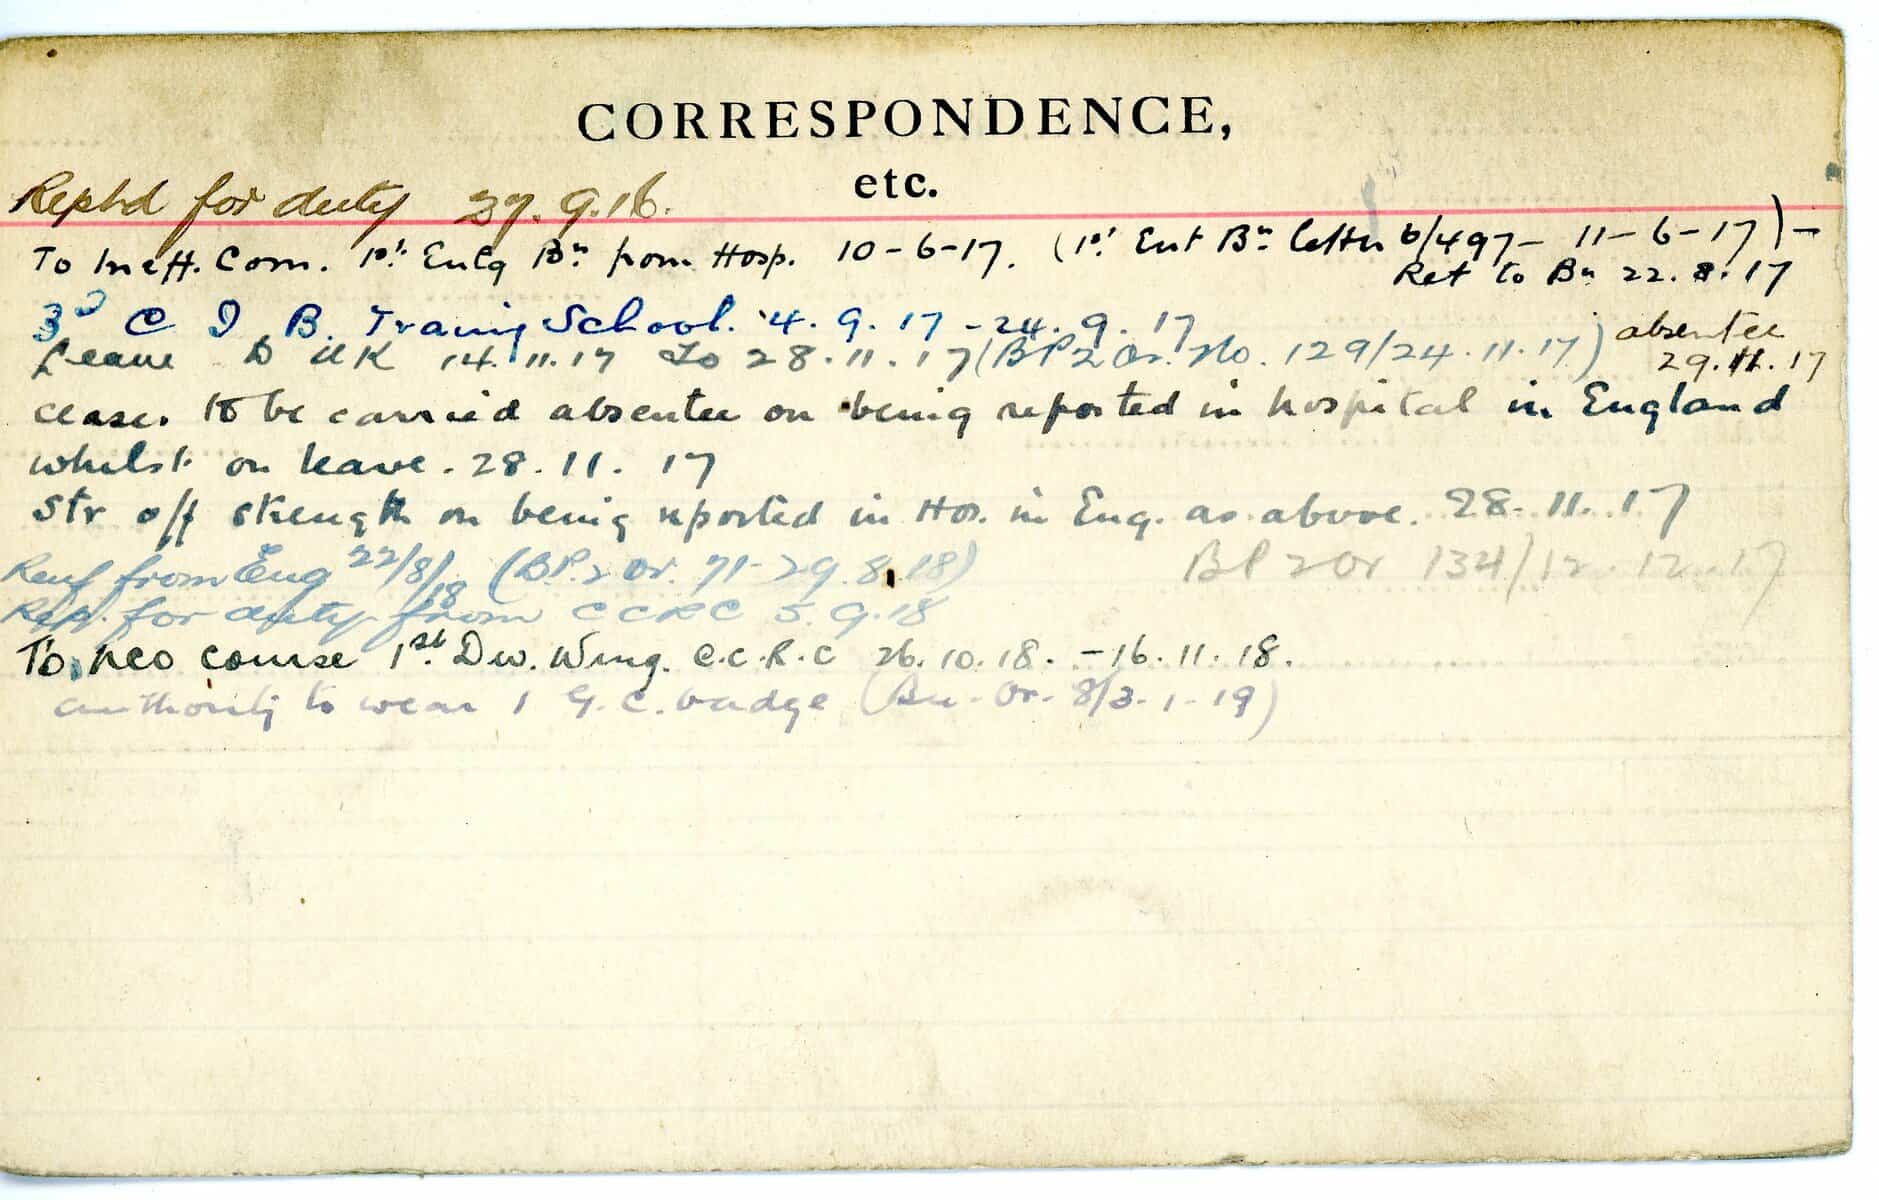 CORRESPONDENCE,
etc.
Reptd for duty 27.9.16.
To Ineff. Com. 1st Entg Bn from Hosp. 10-6-17. (1st Ent Bn letter 6/497- 11-6-17)-
Ret to Bn 22.8.17
3rd C I B. Traing School. 4.9.17 - 24.9.17
Leave UK 14.11.17 To 28.11.17 (BP2 Or. No. 129/24.11.17) absentee
29.11.17
ceases to be carried absentee on being reported in hospital in England
whilst on leave. 28.11.17
Str off strength on being reported in Hos. in Eng. as above. 28.11.17
BP 2 Or 134/12.12.17
Renf from Eng 22/8/18 (B.P.2 Or. 71-29.8.18)
Rep. for duty from CCRC 5.9.18
To NCO course 1st Div. Wing. C.C.R.C 26.10.18. -16.11.18.
authority to wear 1 G.C. badge (Bn. Or. 8/3.1.19)